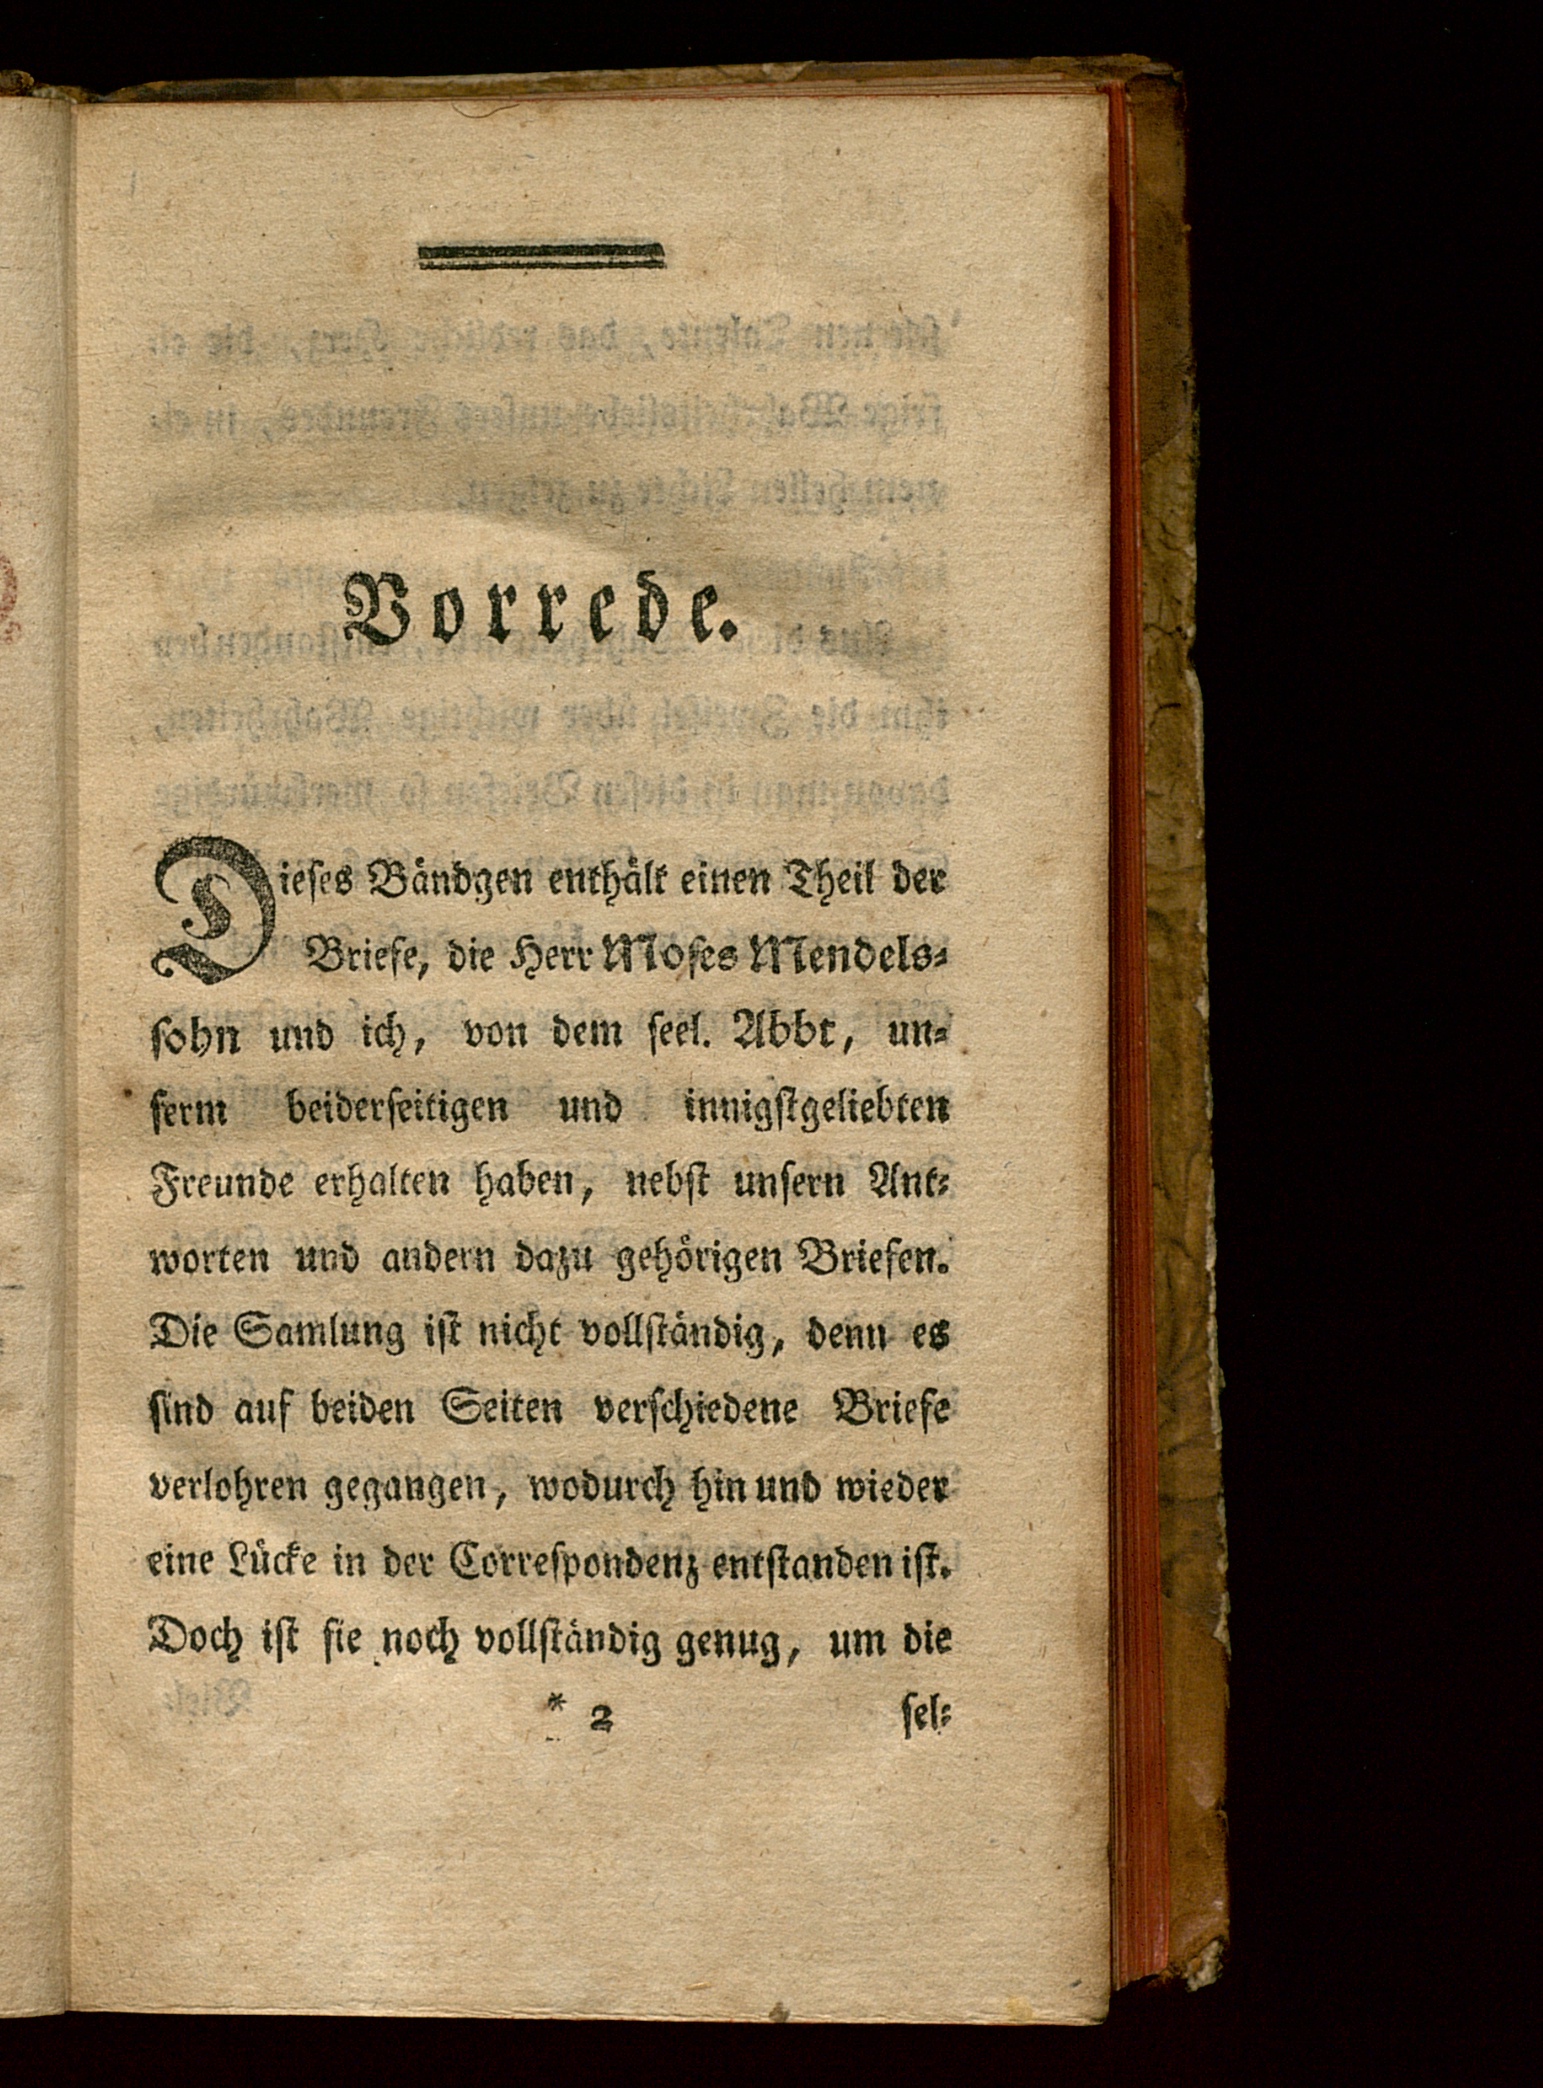 Vorrede.
Dieſes Bändgen enthält einen Theil der
Briefe, die Herr Moſes Mendels⸗
ſohn und ich, von dem ſeel. Abbt, un⸗
ſerm beiderſeitigen und innigſtgeliebten
Freunde erhalten haben, nebſt unſern Ant⸗
worten und andern dazu gehörigen Briefen.
Die Samlung iſt nicht vollſtändig, denn es
ſind auf beiden Seiten verſchiedene Briefe
verlohren gegangen, wodurch hin und wieder
eine Lücke in der Correſpondenz entſtanden iſt.
Doch iſt ſie noch vollſtändig genug, um die
* 2 ſel⸗